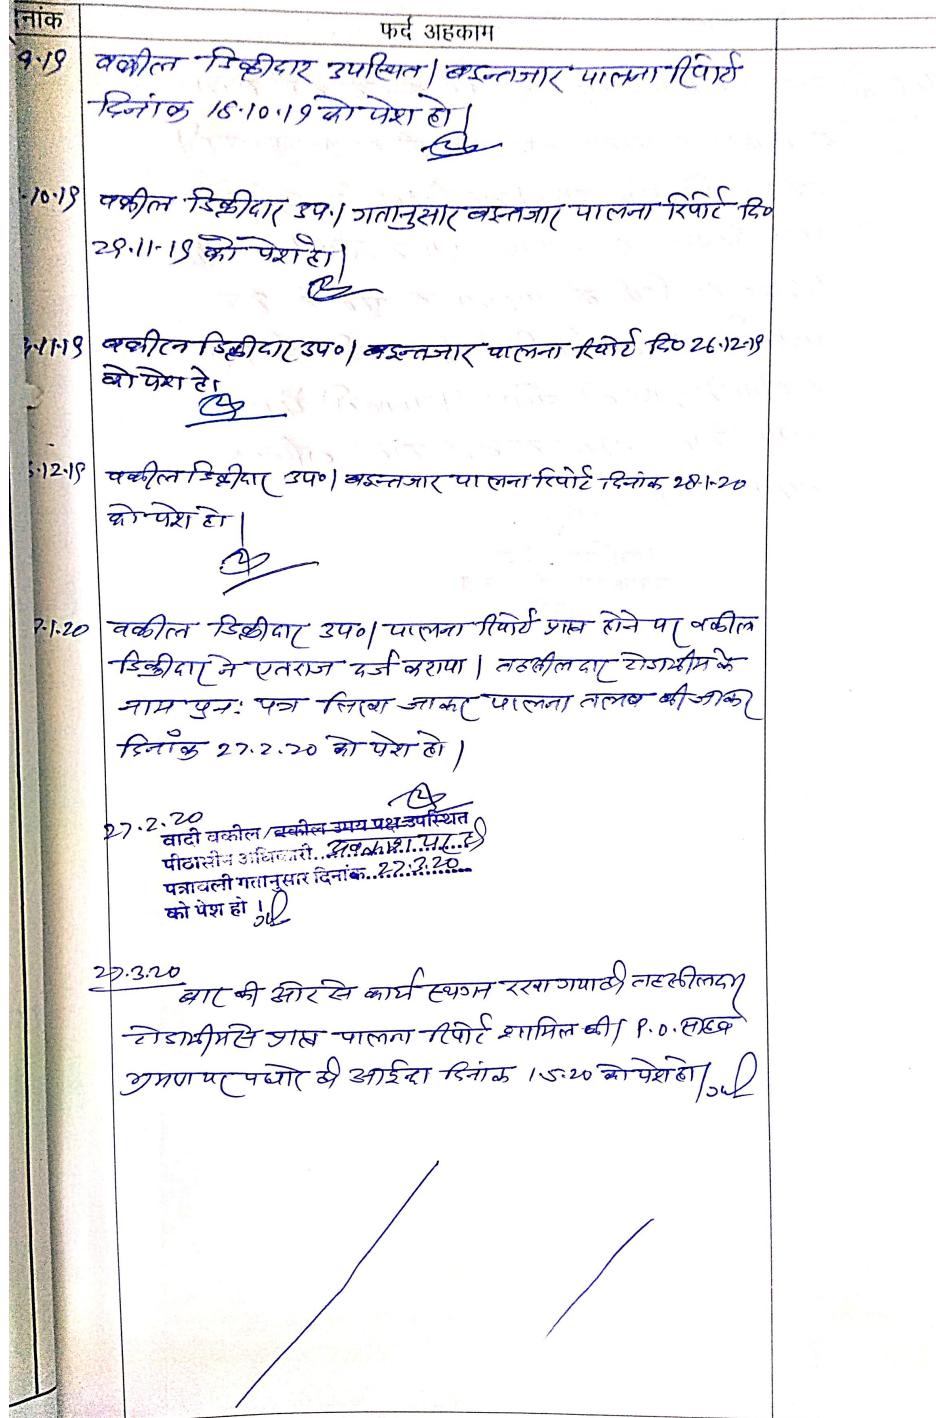 नांक
फर्द अहकाम
9.19 वकील डिक्रीदार उपस्थित। बइन्तजार पालना रिपोर्ट
दिनांक 15.10.19 को पेश हो।
.10.19 वकील डिक्रीदार उप.। गतानुसार बइन्तजार पालना रिपोर्ट दि०
29.11.19 को पेश हो।
.11.19 वकील डिक्रीदार उप०। बइन्तजार पालना रिपोर्ट दि० 26.12.19
को पेश हो।
.12.19 वकील डिक्रीदार उप०। बइन्तजार पालना रिपोर्ट दिनांक 28.1.20
को पेश हो।
.1.20 वकील डिक्रीदार उप०। पालना रिपोर्ट प्राप्त होने पर वकील
डिक्रीदार ने एतराज दर्ज कराया। तहसीलदार टोडाभीम के
नाम पुन: पत्र लिखा जाकर पालना तलब की जाकर
दिनांक 27.2.20 को पेश हो।
27.2.20
वादी वकील/वकील उभय पक्ष उपस्थित
पीठासीन अधिकारी..अवकाश पर है
पत्रावली गतानुसार दिनांक..27.3.20
को पेश हो।
27.3.20
बार की ओर से कार्य स्थगन रखा गया है। तहसीलदार
टोडाभीम से प्राप्त पालना रिपोर्ट शामिल की। P.O. साहब
भ्रमण पर पधारे है। आईंदा दिनांक 1.5.20 को पेश हो।